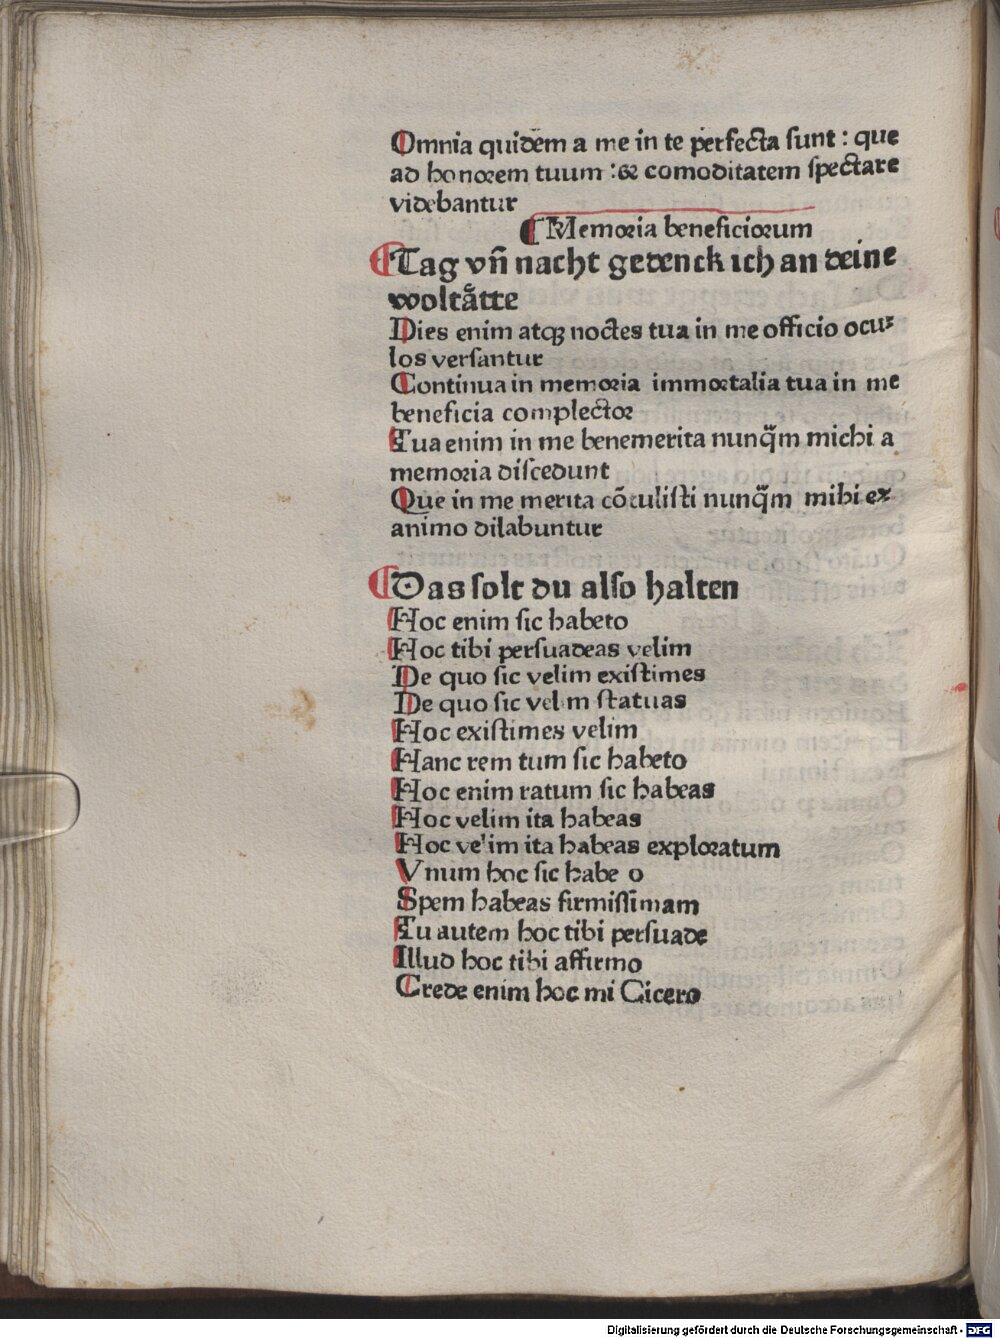 Omnia quidem a me in te perfecta sunt : que
ad honorem tuum : & comoditatem spectare
videbantur
¶ Memoria beneficiorum
¶ Tag vñ nacht gedenck ich an deine
woltåtte
Dies enim atqꝫ noctes tua in me officio ocu⸗
los versantur
Continua in memoria immortalia tua in me
beneficia complector
Tua enim in me benemerita nunq̃m michi a
memoria discedunt
Que in me merita cõtulisti nunq̃m mihi ex
animo dilabuntur
¶ Das solt du also halten
Hoc enim sic habeto
Hoc tibi persuadeas velim
De quo sic velim existimes
De quo sic vel m statuas
Hoc existimes velim
Hanc rem tum sic habeto
Hoc enim ratum sic habeas
Hoc velim ita habeas
Hoc velim ita habeas exploratum
Vnum hoc sic habe o
Spem habeas firmissimam
Tu autem hoc tibi persuade
Illud hoc tibi affirmo
Crede enim hoc mi Cicero
Digitalisierung gefördert durch die Deutsche Forschungsgemeinschaft - DFG